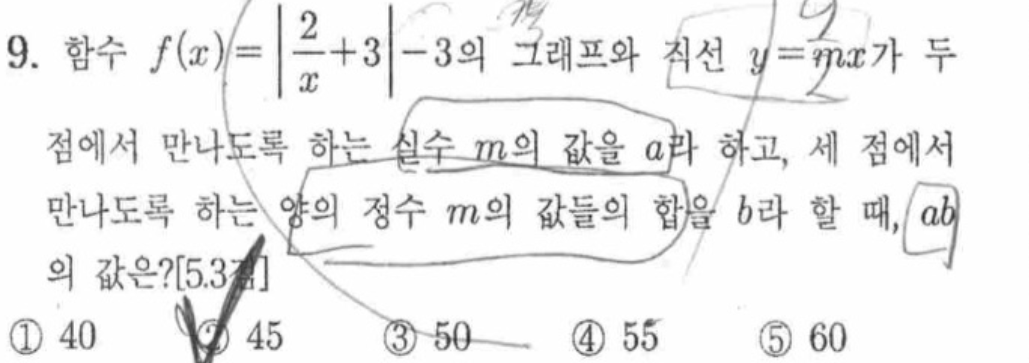 9. 함수 f(x)=|2/x+3|-3의 그래프와 직선 y=mx가 두
점에서 만나도록 하는 실수 m의 값을 a라 하고, 세 점에서
만나도록 하는 양의 정수 m의 값들의 합을 b라 할 때, ab
의 값은?[5.3점]
① 40 ② 45 ③ 50 ④ 55 ⑤ 60